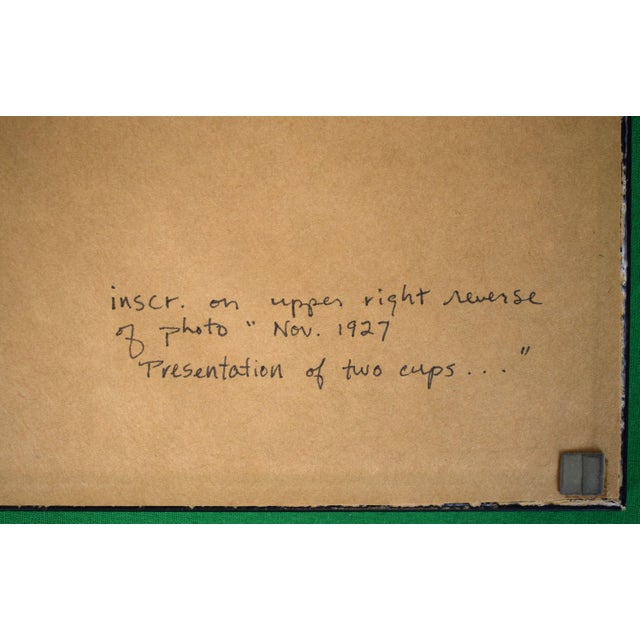 inscr. on upper right reverse
of photo " Nov. 1927
Presentation of two cups... "